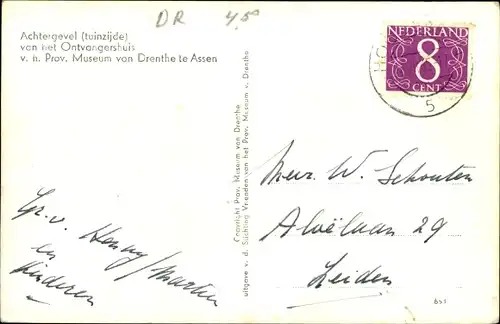 DR 4,50
Achtergevel (tuinzijde)
van het Ontvangershuis
v. h. Prov. Museum van Drenthe te Assen
NEDERLAND
8
CENT
5
Gr. v. Hanny/Martin
en
Kinderen
Copyright Prov. Museum van Drenthe
uitgave v. d. Stichting Vrienden van het Prov. Museum v. Drenthe
Mevr. W. Schouten
Alvëlaan 29
Leiden